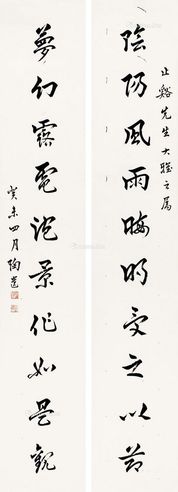 止谿先生大雅之属
陰陽風雨晦明受之以節
夢幻露電泡景作如是觀
癸未四月陶